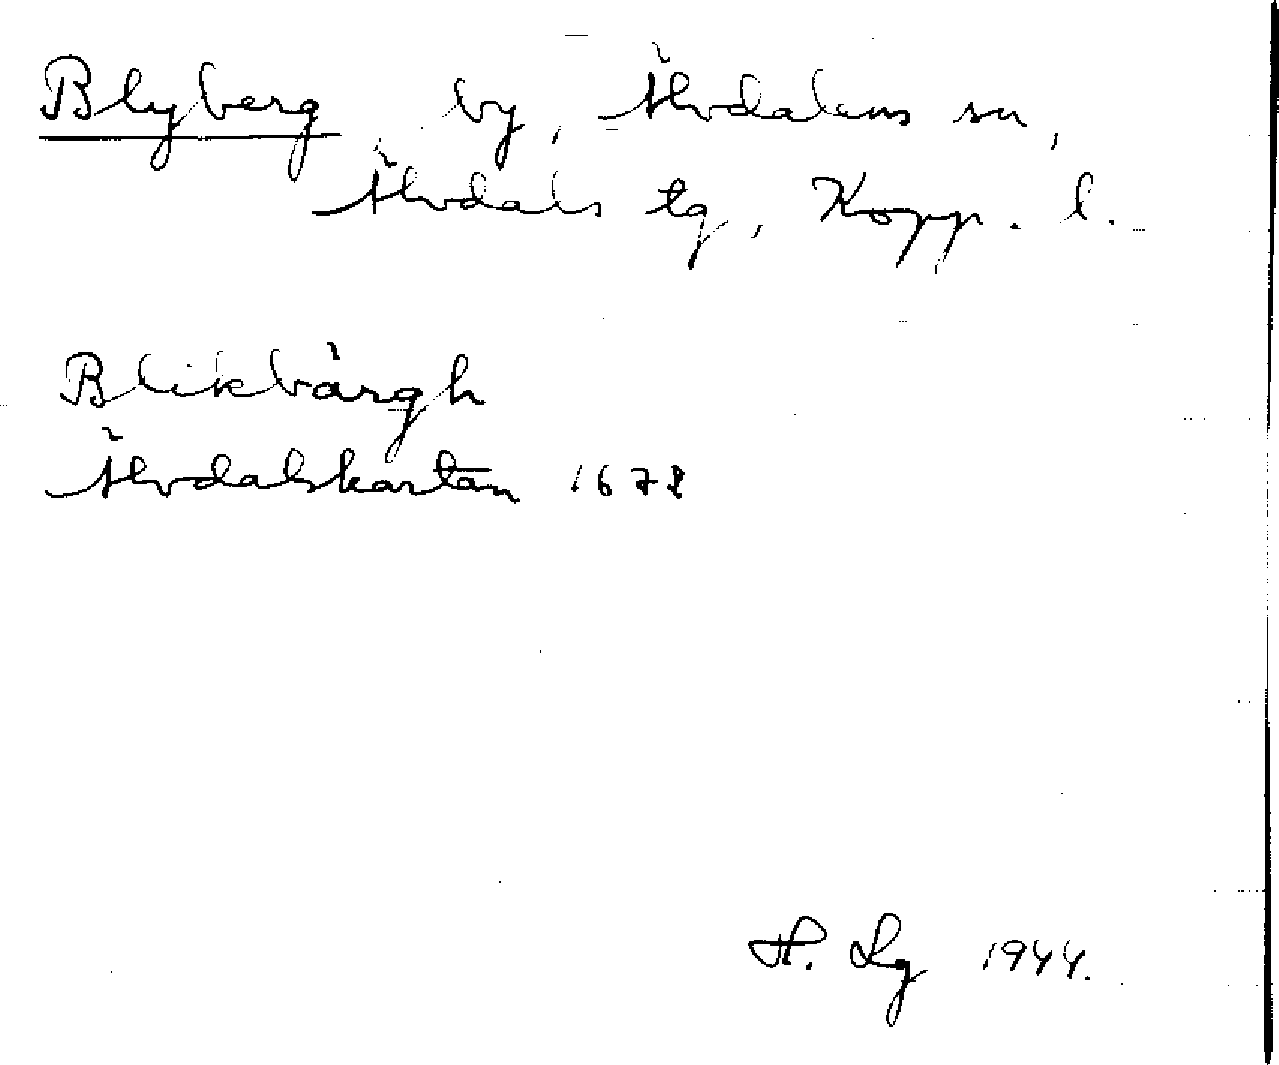 Blyberg, by, Älvdalens sn,
Älvdals tg, Kopp. l.
Blikbärgh
Älvdalskartan 1678
H. Lg 1944.